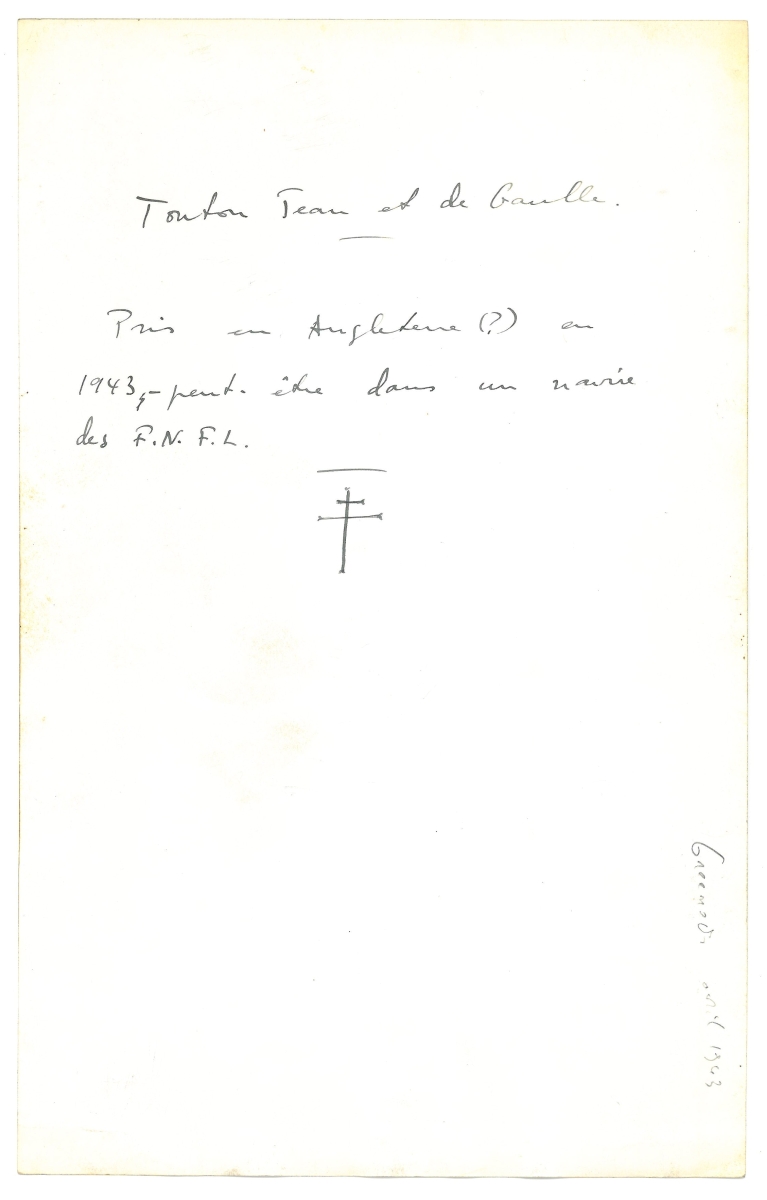 Tonton Jean et de Gaulle.
Pris en Angleterre (?) en
1943,- peut-être dans un navire
des F.N.F.L.
avril 1943